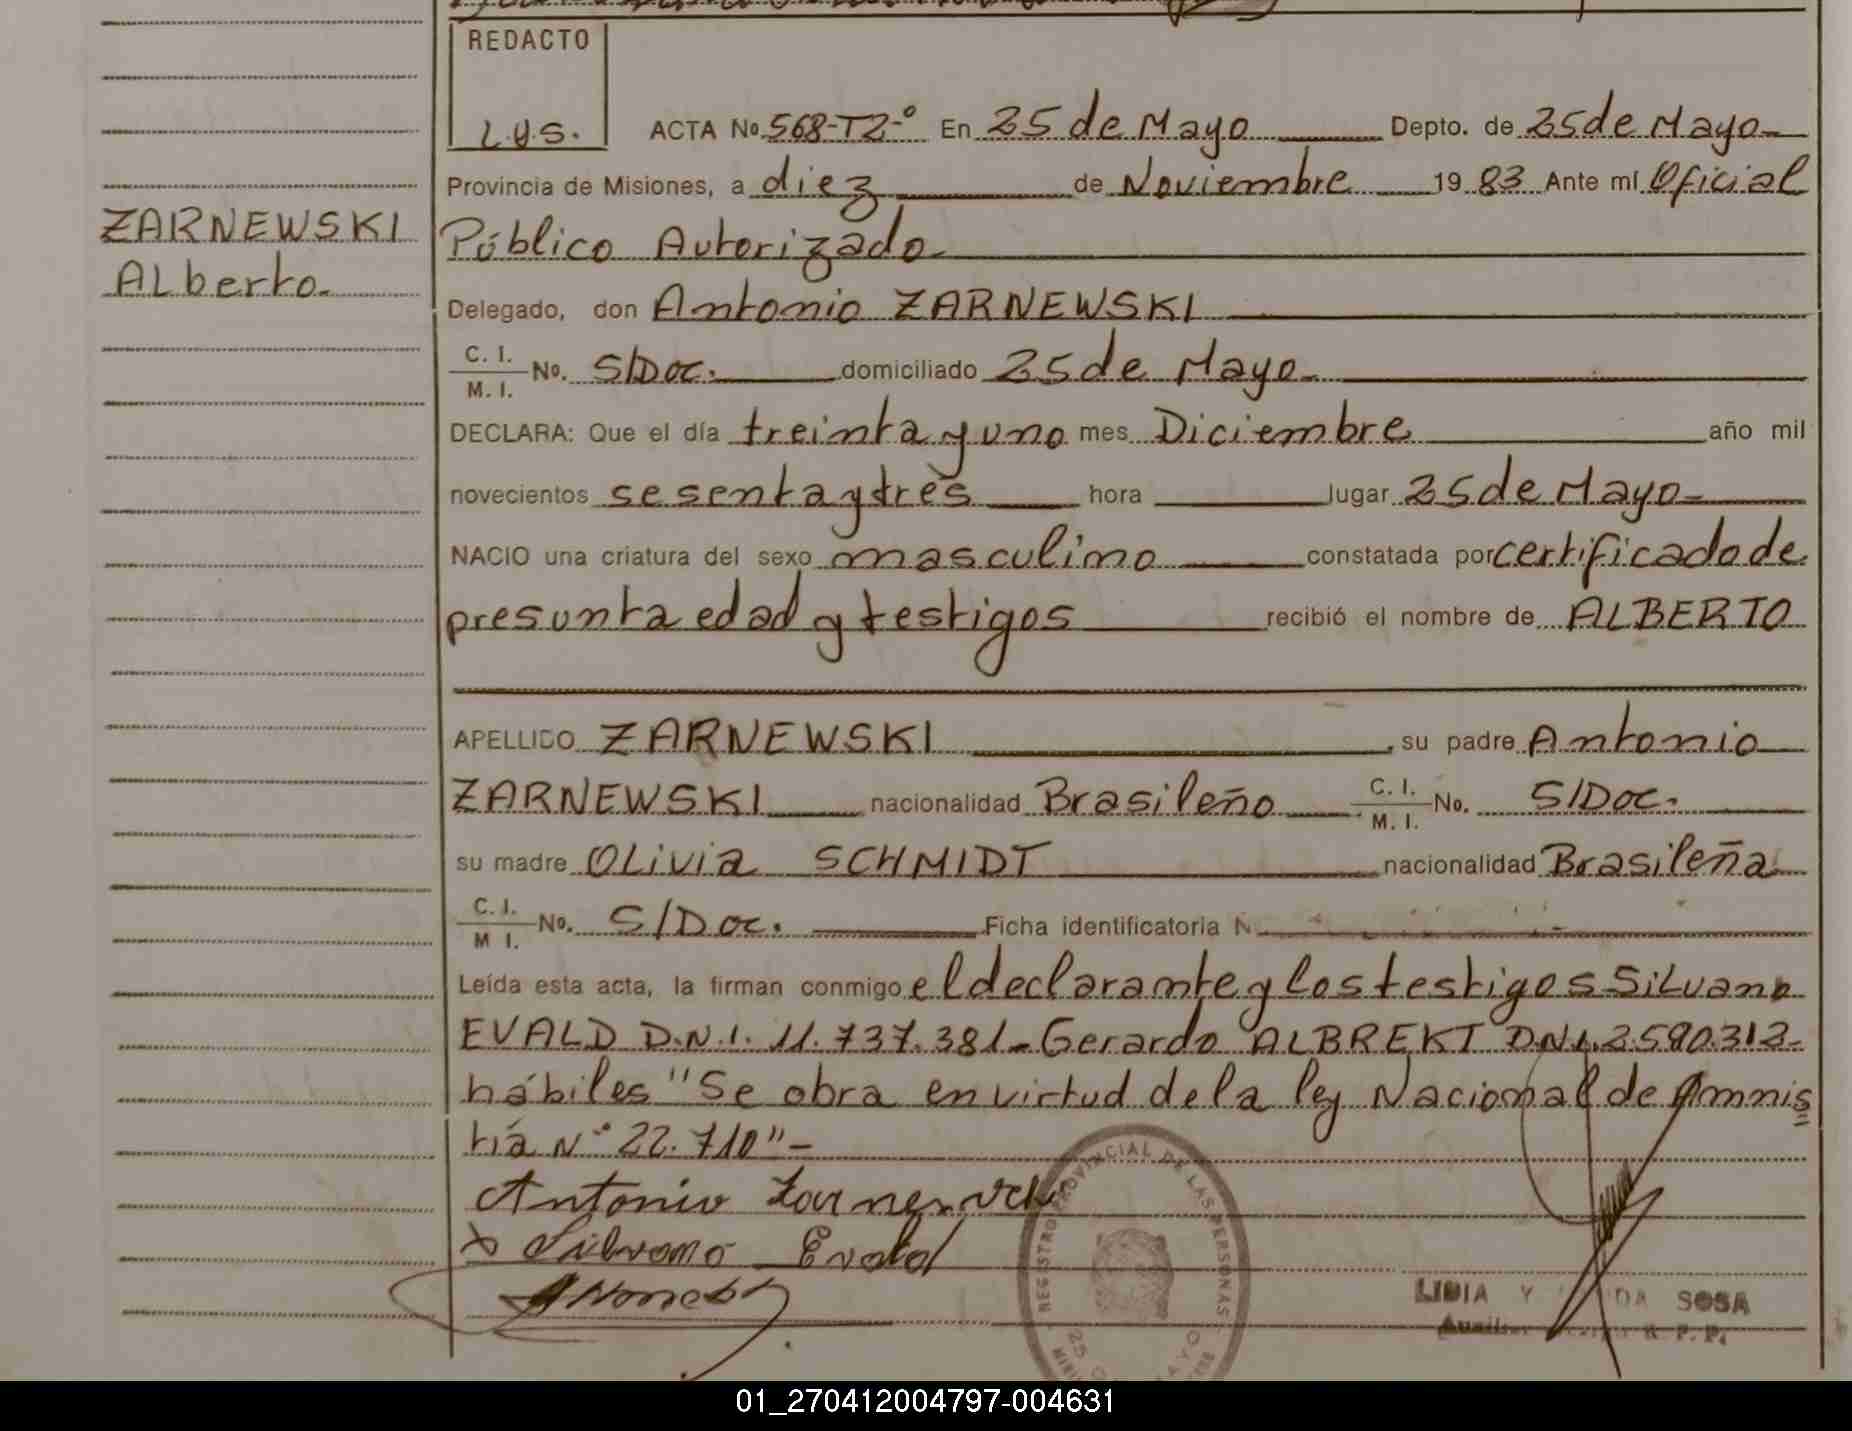 REDACTO
L.Y.S.
ACTA No. 568-T2-º En 25 de Mayo Depto. de 25 de Mayo
Provincia de Misiones, a diez de Noviembre 19 83 Ante mí Oficial
ZARNEWSKI
Público Autorizado
ALberto.
Delegado, don Antonio ZARNEWSKI
C. I. / M. I. No. S/Doc. domiciliado 25 de Mayo
DECLARA: Que el día treinta y uno mes Diciembre año mil
novecientos sesenta y tres hora lugar 25 de Mayo
NACIO una criatura del sexo masculino constatada por certificado de
presunta edad y testigos recibió el nombre de ALBERTO
APELLIDO ZARNEWSKI, su padre Antonio
ZARNEWSKI nacionalidad Brasileño C. I. / M. I. No. S/Doc.
su madre OLivia SCHMIDT nacionalidad Brasileña
C. I. / M I. No. S/Doc. Ficha identificatoria N
Leída esta acta, la firman conmigo el declarante y Los testigos SiLvano
EVALD D.N.I. 11.737.381- Gerardo ALBREKT DNI. 2580.312-
hábiles "Se obra en virtud de la ley Nacional de Amnis
tía Nº 22.710"-
Antonio
Silvano Evald
REGISTRO PROVINCIAL DE LAS PERSONAS
25 DE MAYO
LIDIA Y DA SOSA
R. P. P.
01_270412004797-004631